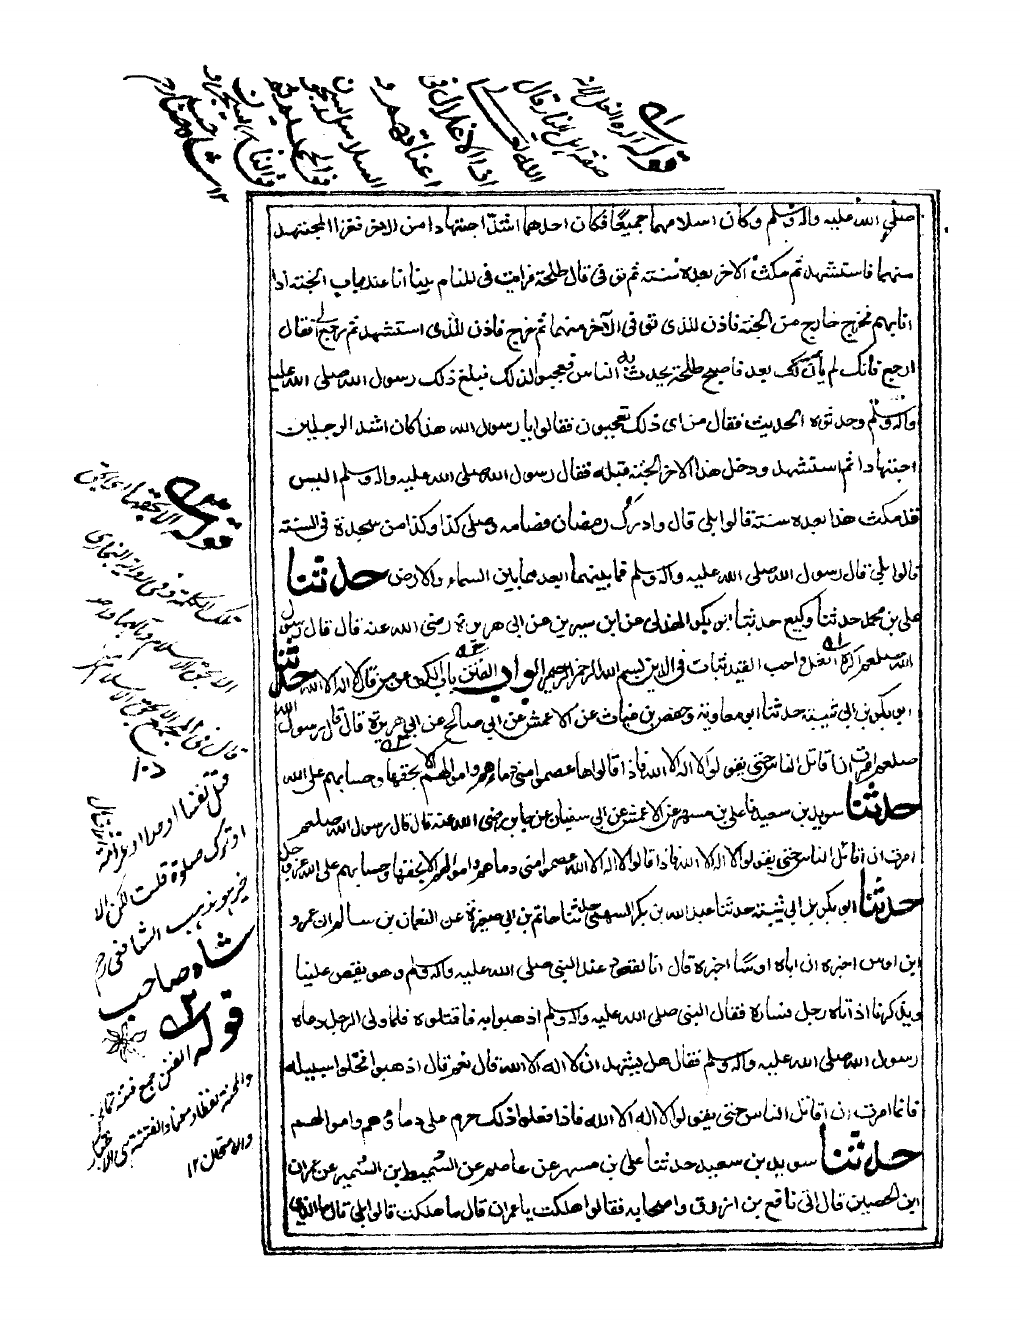 قوله اكره الغل لانه
صفة اهل النار قال
الله تعالى
اذ الاغلال فى
اعناقهم و
السلاسل
صلى الله عليه واله وسلم وكان اسلامهما جميعًا فكان احدهما اشدّ اجتهادا من الاخر فغزا المجتهد
منهما فاستشهد ثم مكث الاخر بعده سنة ثم توفى قال طلحة فرايت فى المنام بينا انا عند باب الجنة اذا
انا بهم فخرج خارج من الجنة فاذن للذى توفى الآخر منهما ثم خرج فاذن للذى استشهد ثم رجع الى فقال
ارجع فانك لم يأن لك بعد فاصبح طلحة يحدث به الناس فعجبوا لذلك فبلغ ذلك رسول الله صلى الله عليه
واله وسلم وحدثوه الحديث فقال من اى ذلك تعجبون فقالوا يا رسول الله هذا كان اشد الرجلين
اجتهادا ثم استشهد ودخل هذا الاخر الجنة قبله فقال رسول الله صلى الله عليه واله وسلم اليس
قد مكث هذا بعده سنة قالوا بلى قال وادرك رمضان فصامه وصلى كذا وكذا من سجدة فى السنة
قالوا بلى قال رسول الله صلى الله عليه واله وسلم فما بينهما ابعد مما بين السماء والارض حدثنا
على بن محمد حدثنا وكيع حدثنا ابو بكر الهذلى عن ابن سيرين عن ابى هريرة رضى الله عنه قال قال رسول
الله صلعم اكره الغل واحب القيد ثبات فى الدين بسم الله الرحمن الرحيم ابواب الفتن باب الكف عن من قال لا اله الا الله حدثنا
ابو بكر بن ابى شيبة حدثنا ابو معاوية وحفص بن غياث عن الاعمش عن ابى صالح عن ابى هريرة قال قال رسول الله
صلعم امرت ان اقاتل الناس حتى يقولوا لا اله الا الله فاذا قالوها عصموا منى دماءهم واموالهم الا بحقها وحسابهم على الله
حدثنا سويد بن سعيد ثنا على بن مسهر عن الاعمش عن ابى سفيان عن جابر رضى الله عنه قال قال رسول الله صلعم
امرت ان اقاتل الناس حتى يقولوا لا اله الا الله فاذا قالوا لا اله الا الله عصموا منى دماءهم واموالهم الا بحقها وحسابهم على الله عز وجل
حدثنا ابو بكر بن ابى شيبة حدثنا عبد الله بن بكر السهمى حدثنا حاتم بن ابى صغيرة عن النعمان بن سالم ان عمرو
ابن اوس اخبره ان اباه اوسًا اخبره قال انا لقعود عند النبى صلى الله عليه واله وسلم وهو يقص علينا
ويذكرنا اذ اتاه رجل فساره فقال النبى صلى الله عليه واله وسلم اذهبوا به فاقتلوه فلما ولى الرجل دعاه
رسول الله صلى الله عليه واله وسلم فقال هل يشهد ان لا اله الا الله قال نعم قال اذهبوا فخلوا سبيله
فانما امرت ان اقاتل الناس حتى يقولوا لا اله الا الله فاذا فعلوا ذلك حرم على دماؤهم واموالهم
حدثنا سويد بن سعيد حدثنا على بن مسهر عن عاصم عن السميط بن السمير عن عمران
ابن الحصين قال اتى نافع بن ازرق واصحابه فقالوا هلكت يا عمران قال ما هلكت قالوا بلى قال ما الذى
قوله الا بحقها
تلك الكلمة وفى رواية البخارى
الا بحق الاسلام
قتل نفسا او حدا او غرامة
او ترك صلوة قلت لكن
مذهب الشافعى رح
شاه صاحب
قوله الفتن جمع فتنة
والمحنة لفظا ومعنا والفتنة
والامتحان ۱۲